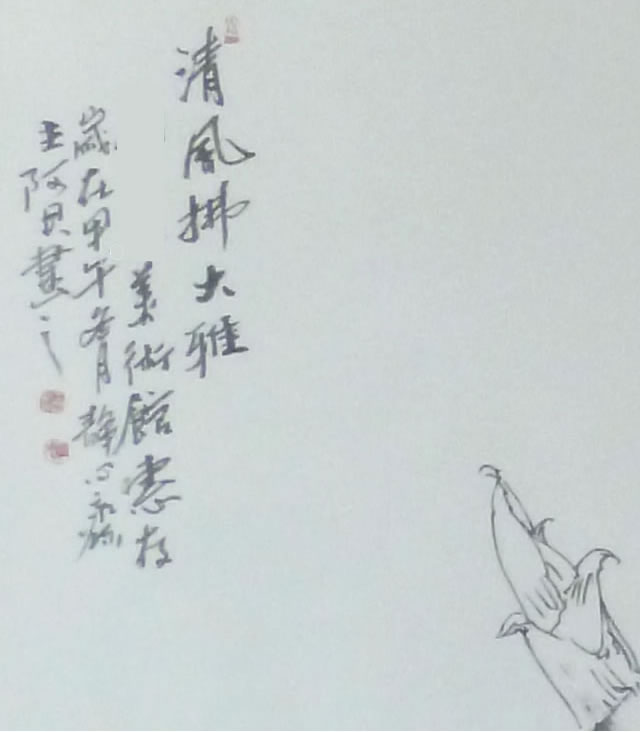 清風拂大雅
美術館惠存
歲在甲午冬月静心永
王阿貝畫之